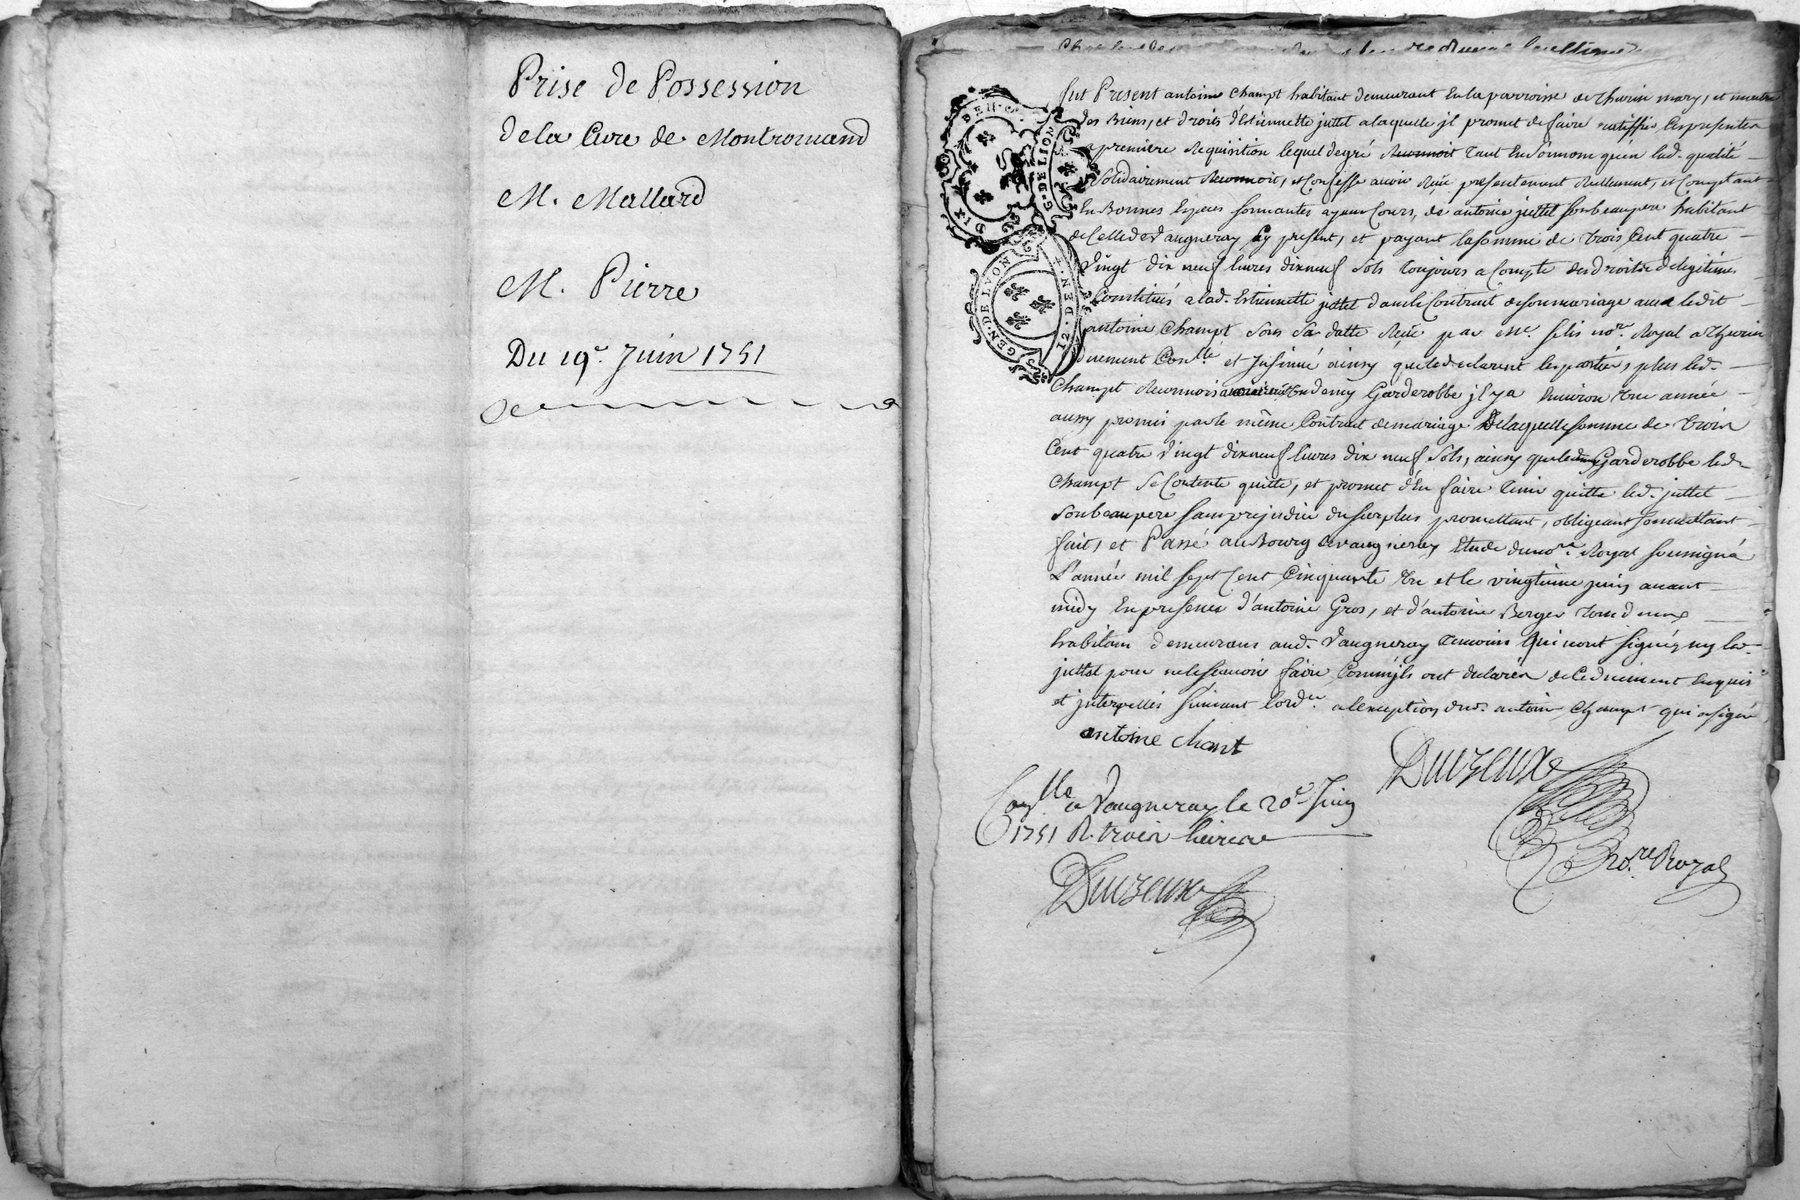 Prise de Possession
de la Cure de Montromand
M. Mallard
M. Pierre
Du 19e. Juin 1751
fut Present antoine Champt habitant demeurant En la parroisse de thurin mary, et maitre
des Biens, et droits d'Estiennette juttet a laquelle jl promet de faire ratiffier Ces presentes
a premiere Requisition lequel de gré Reconnoit tant En Son nom qu'en lad. qualité
Solidairement Reconnoit, et Confesse avoir Reçu presentement Reellement, et Comptant
En Bonnes Especes Sonnantes ayant Cours, de antoine juttet Son beaupere habitant
de Celle de Vaugneray Cy present, et payant la somme de trois Cent quatre
Vingt dix neuf livres dix neuf Sols toujours a Compte des droits de legitime
Constitués a lad. Estiennette juttet dans le Contrait de Son mariage avec ledit
antoine Champt Sous Sa datte Reçu par me. no.re Royal a thurin
duement Con.llé et Insinué ainsy que le declarent les parties, plus led.
Champt Reconnoit demy Garderobbe jl y a Environ Une année
aussy promis par le même Contrait de mariage De laquelle somme de trois
Cent quatre Vingt dix neuf livres dix neuf Sols, ainsy que le demy Garderobbe led.
Champt Se Contente quitte, et promet d'En faire tenir quitte led. juttet
Son beaupere Sans prejudice du Surplus promettant, obligeant Soumettant
fait, et Passé au Bourg de Vaugneray Etude du no.re Royal Soussigné
L'année mil Sept Cent Cinquante Un et le vingtieme juin avant
midy En presence d'antoine Gros, et d'antoine Berger tous deux
habitans demeurans aud. Vaugneray temoins Qui n'ont signé, ny led.
juttet pour ne le Scavoir faire Comm'jls ont declarés de Ce duement Enquis
et jnterpellés Suivant l'ord.ce a l'exception dud. antoine Champt qui a signé
antoine chant
Con.llé a Vaugneray le 20e Juin
1751 R. trois livres
no.re Royal
DIX DEN.
G. DE LION
GEN. DE LYON
12. DEN.